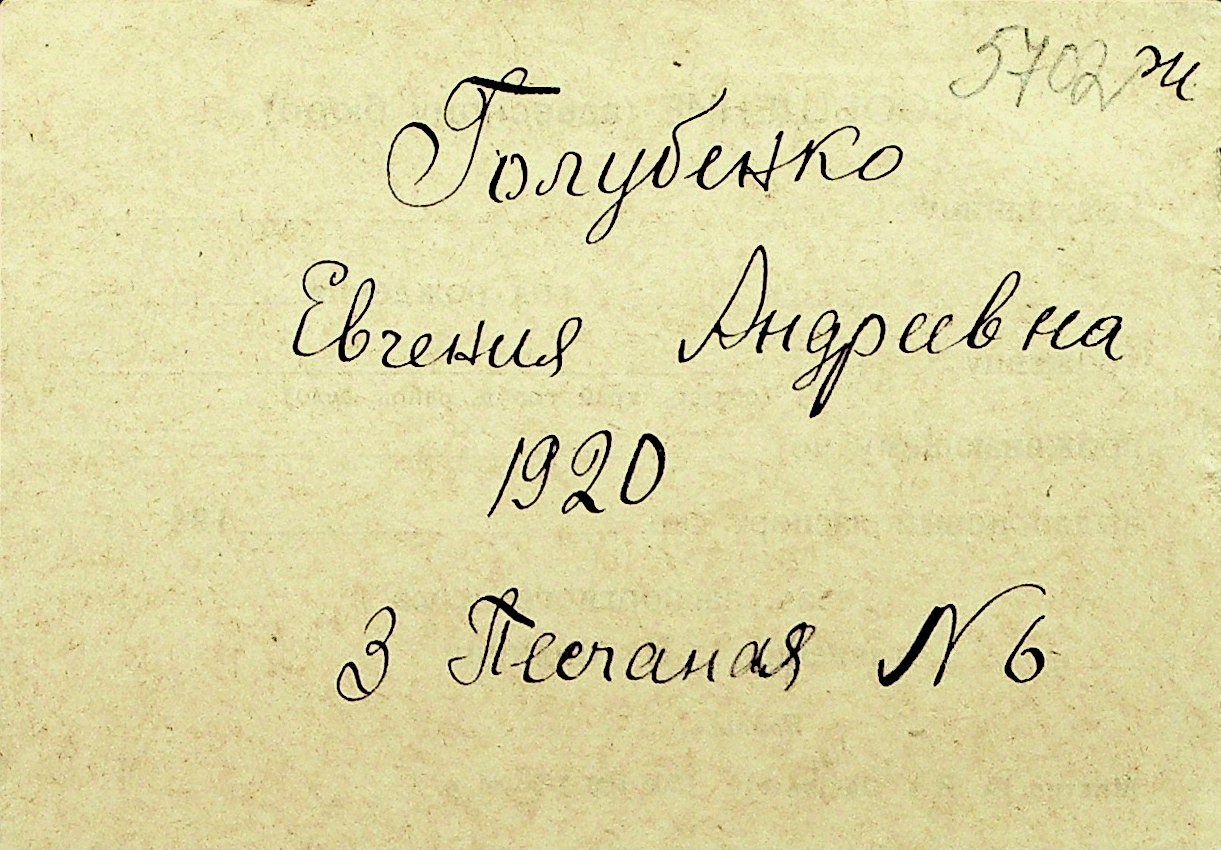 5702 ж
Голубенко
Евгения Андреевна
1920
3 Песчаная N 6